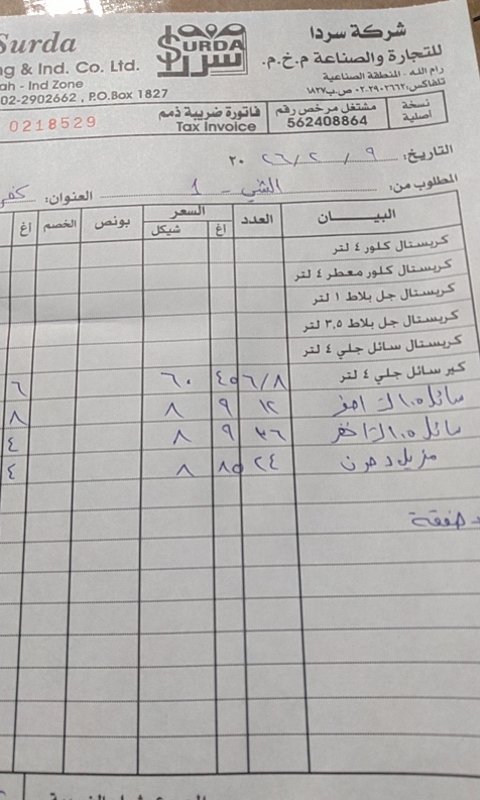 Surda
شركة سردا
SURDA
سردا
للتجارة والصناعة م.خ.م.
ng & Ind. Co. Ltd.
رام الله - المنطقة الصناعية
ah - Ind Zone
تلفاكس: ٠٢٠٢٩٠٢٦٦٢ ص.ب ١٨٢٧
02-2902662 , P.O.Box 1827
نسخة أصلية
مشتغل مرخص رقم
562408864
فاتورة ضريبية ذمم
Tax Invoice
0218529
التاريخ: ٩ / ٢ / ٢٦ ٢٠
المطلوب من: الشني - 1 العنوان: كفر
البيـــان العدد السعر بونص الخصم
اغ شيكل اغ
كريستال كلور ٤ لتر
كريستال كلور معطر ٤ لتر
كريستال جل بلاط ١ لتر
كريستال جل بلاط ٣,٥ لتر
كريستال سائل جلي ٤ لتر
كير سائل جلي ٤ لتر ٦/٨ ٤٥ ٦٠ ٦
سائل ١٢ ٩ ٨ ٨
سائل ٣٦ ٩ ٨ ٤
مزيل دهون ٢٤ ٨٥ ٨ ٤
صفقة